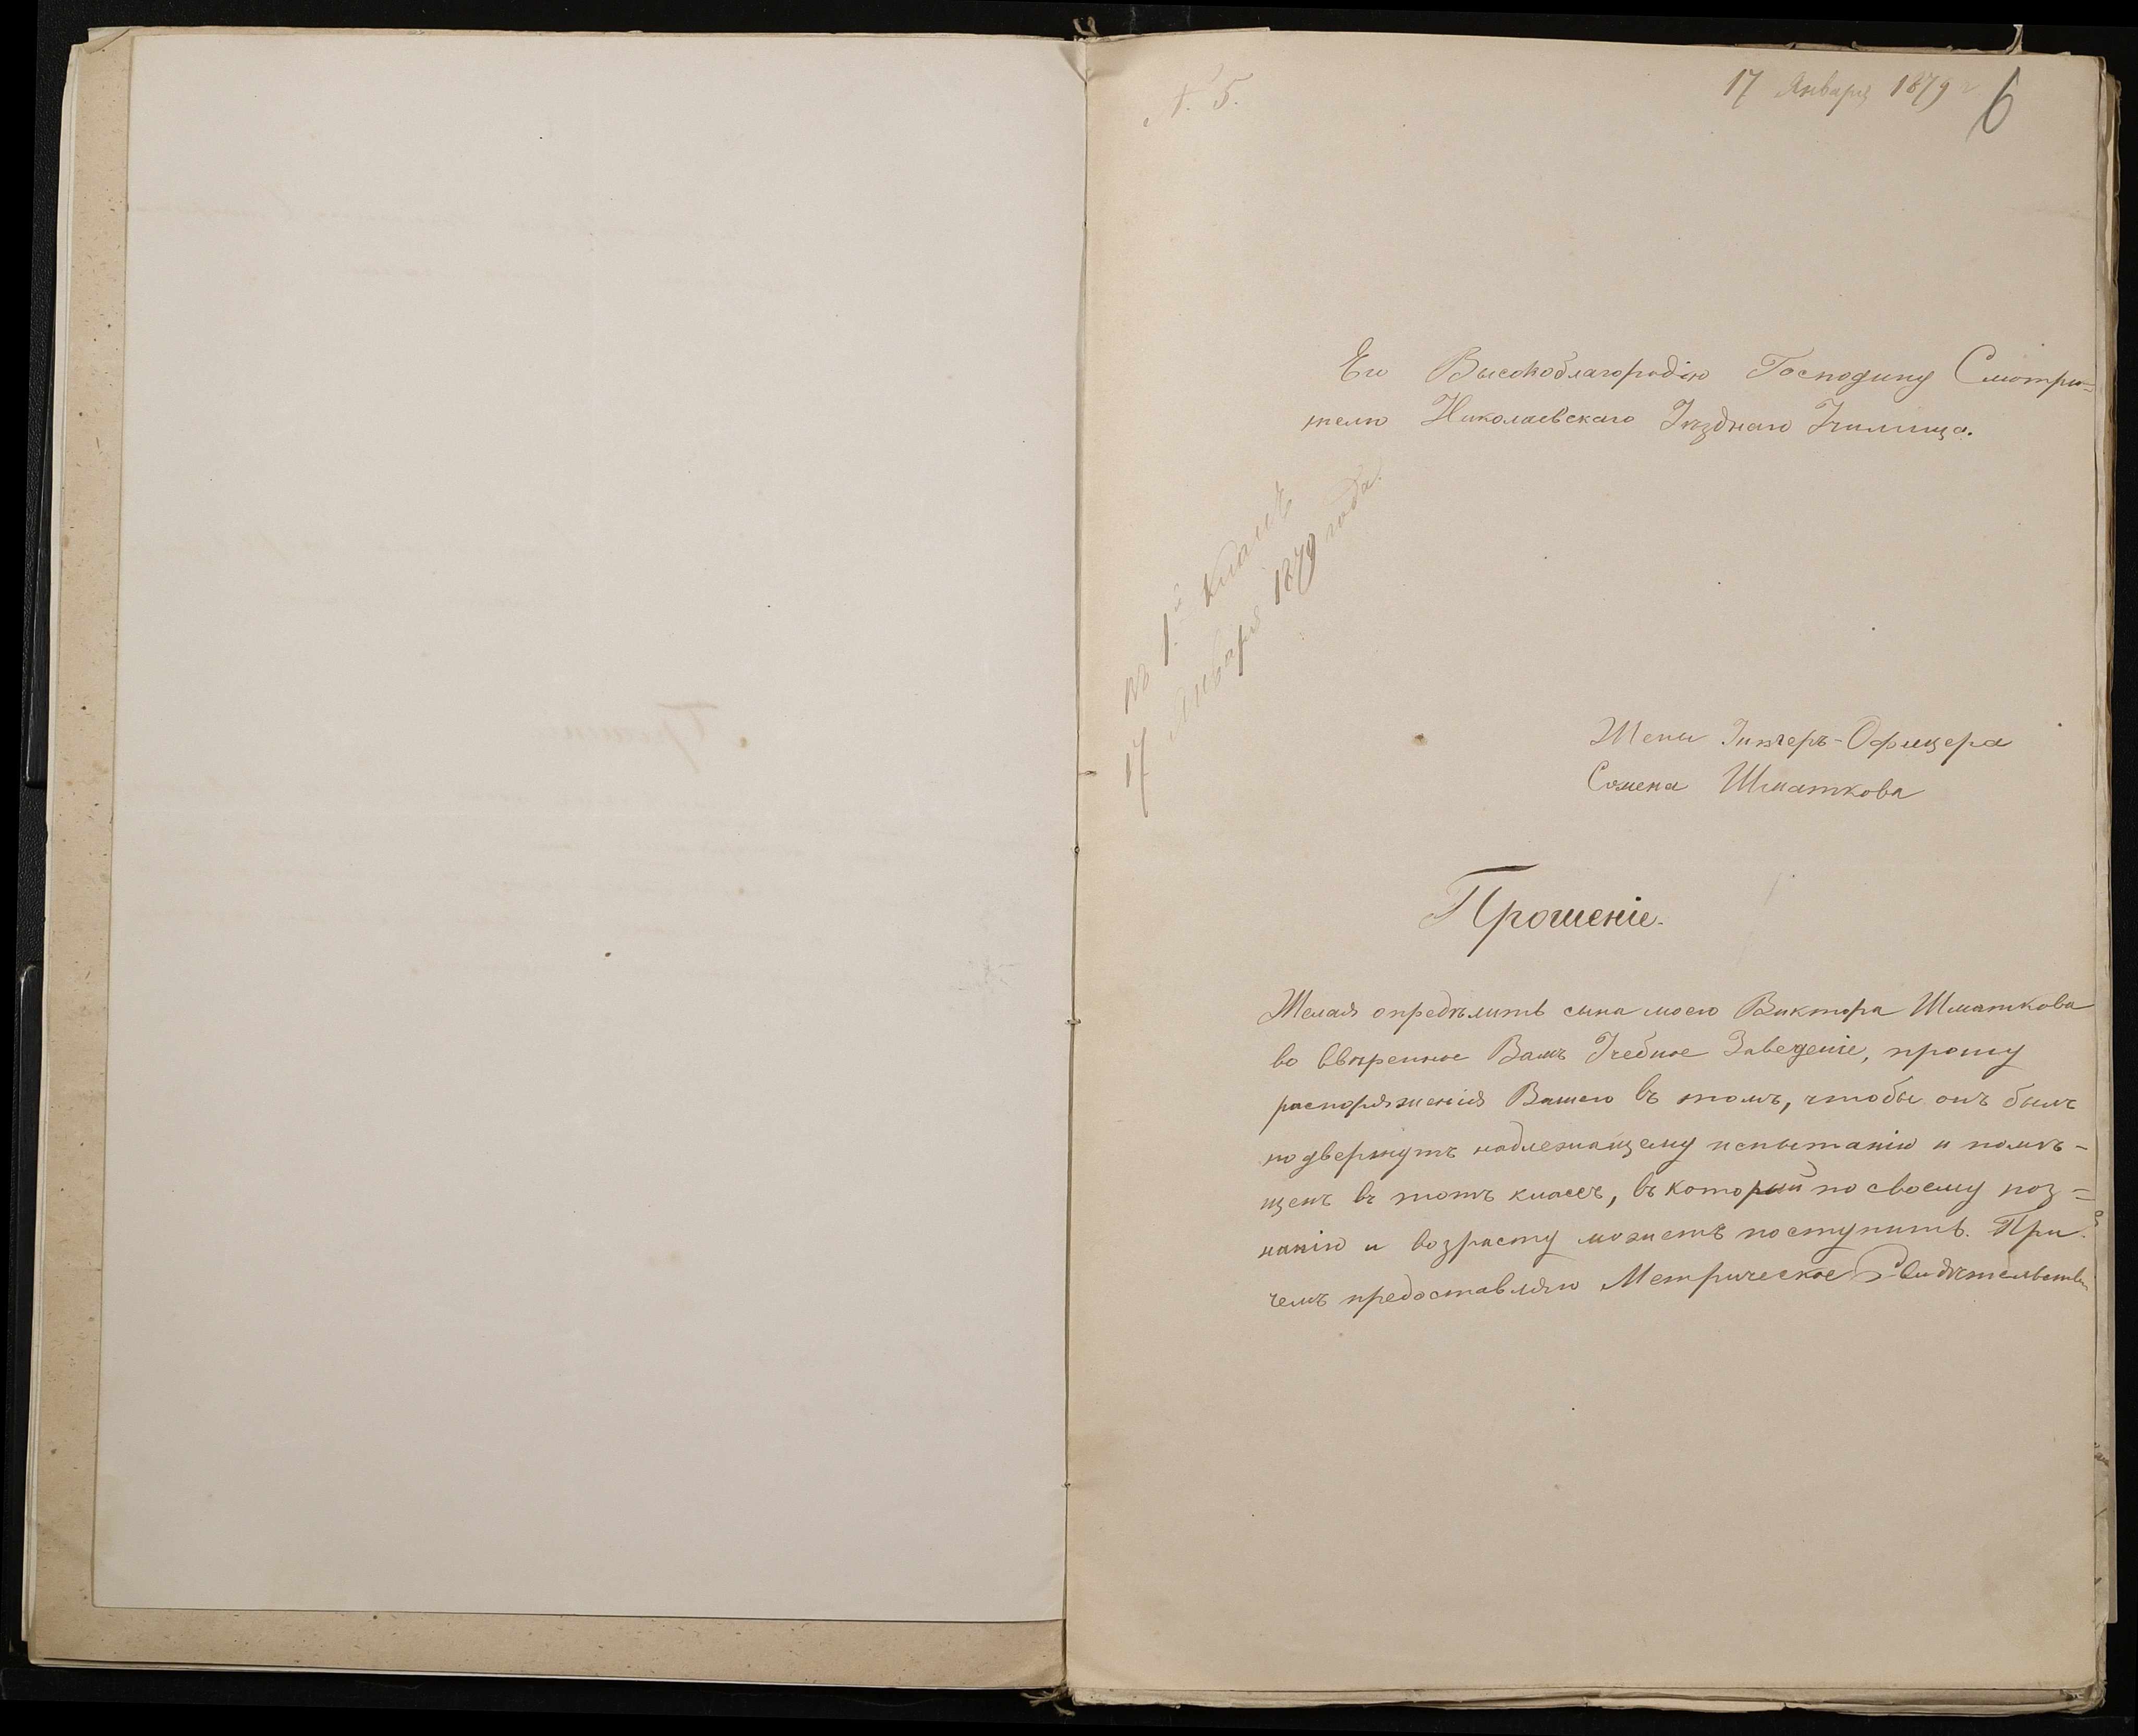 № 5.
17 Января 1879 г
6
Его Высокоблагородію Господину Смотри=
телю Николаевскаго Уѣзднаго Училища.
въ 1й классъ
17 Января 1879 года.
Жены Унтеръ-Офицера
Семена Шматкова
Прошеніе.
Желая опредѣлить сына моего Виктора Шматкова
во ввѣренное Вамъ Учебное Заведеніе, прошу
распоряженія Вашего въ томъ, чтобы онъ былъ
подвергнутъ надлежащему испытанію и помѣ-
щенъ въ тотъ классъ, въ который по своему поз=
нанію и возрасту можетъ поступить. При
чемъ предоставляю Метрическое Свидѣтельство